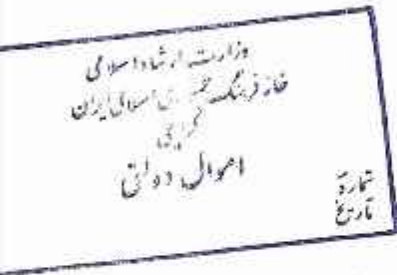 وزارت ارشاد اسلامی
خانه فرهنگ جمهوری اسلامی ایران
کراچی
اموال دولتی
شمارهٔ
تاریخ